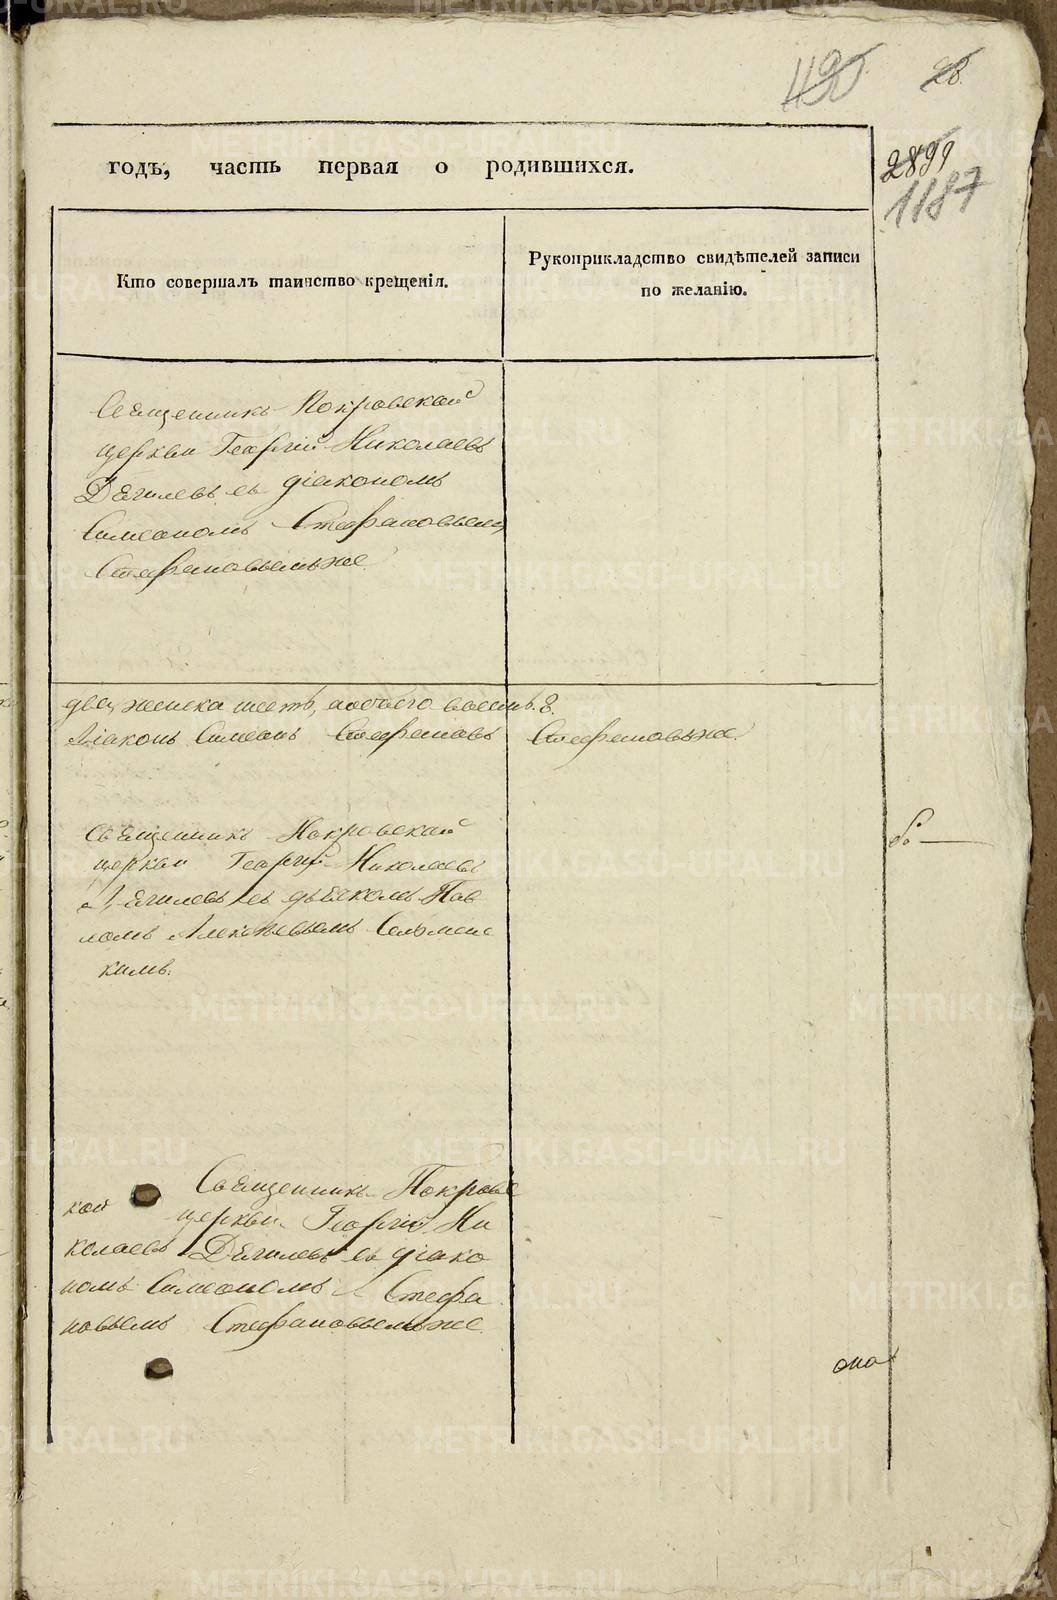 490 28.
годъ, часть первая о родившихся.
2899
1187
Кто совершалъ таинство крещенія.
Рукоприкладство свидѣтелей записи
по желанію.
Священникъ Покровской
церкви Георгій Николаевъ
Дягилевъ съ діакономъ
Симеономъ Стефановымъ
Стефановымъ же.
два, женска шесть, обоего восемь. 8.
Діаконъ Симеонъ Стефановъ Стефановъ же.
Священникъ Покровской
церкви Георгій Николаевъ
Дягилевъ съ дьячкомъ Пав
ломъ Алексѣевымъ
кимъ.
Священникъ Покровс
кой церкви Георгій Ни
колаевъ Дягилевъ съ діако
номъ Симеономъ Стефа
новымъ Стефановымъ же.
она
METRIKI.GASO-URAL.RU